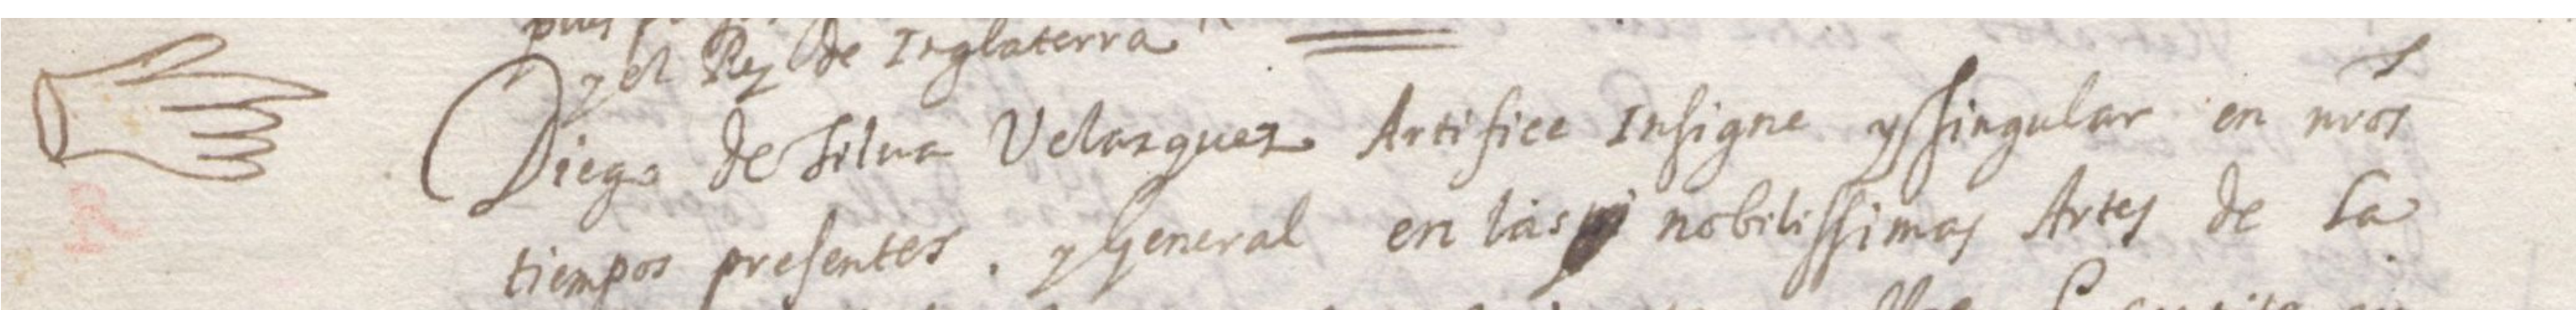 y el Rey de Inglaterra
Diego de Silua Velazquez Artifice Insigne y singular en nros
tiempos presentes. y General en las nobilissimas Artes de La